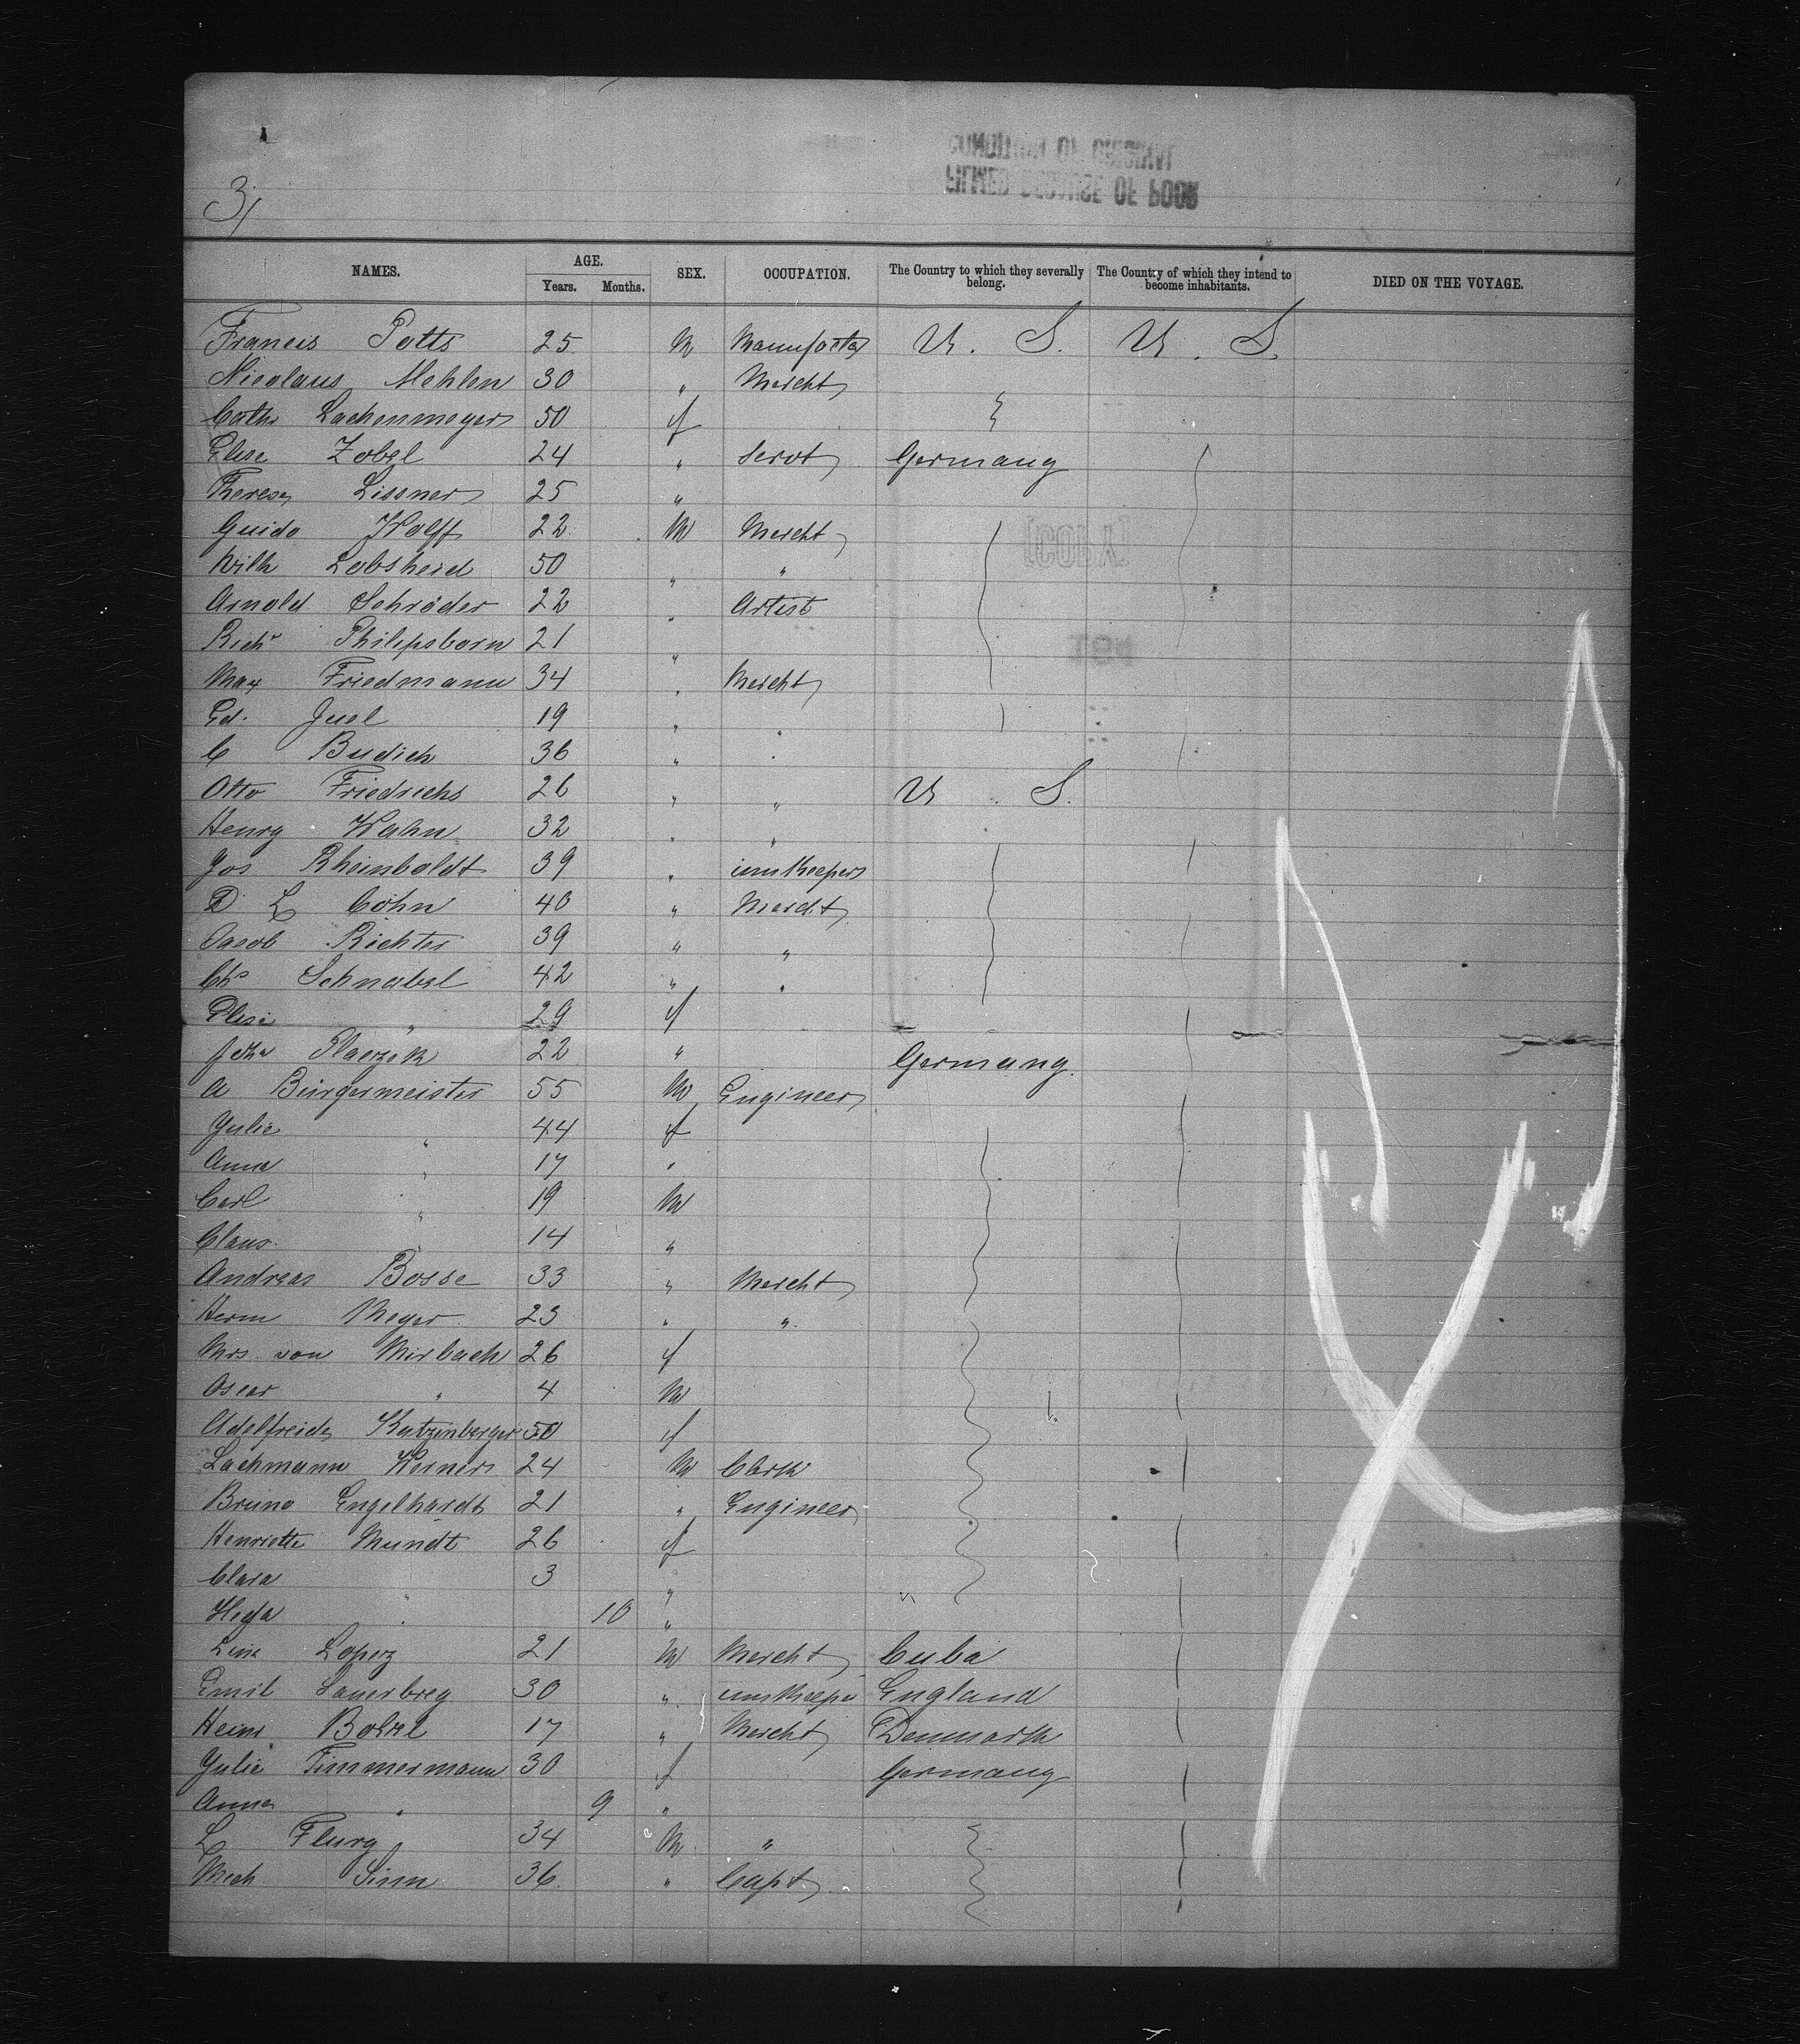 3/
NAMES. AGE. Years. Months. SEX. OCCUPATION. The Country to which they severally belong. The Country of which they intend to become inhabitants. DIED ON THE VOYAGE.
Francis Potts 25 M U. S. U. S.
Nicolaus Mehlen 30 " Mercht
Cathe Lachenmeyer 50 f
Elise Zobel 24 " Servt Germany
Therese Lissner 25 "
Guido Wolff 22 M Mercht
Wilh Lobsheid 50 " "
Arnold Schröder 22 " Artist
Richd Philipsborn 21 "
Max Friedmann 34 " Mercht
Ed. Juel 19 " "
C Budich 36 " "
Otto Friedrichs 26 " " U. S.
Henry Hahn 32 " "
Jos Rheinboldt 39 " innkeeper
D L Cohn 40 " Mercht
Jacob Richter 39 " "
Chs Schnabel 42 " "
Elise " 29 f
Placzek 22 " Germany
A Bürgermeister 55 M Engineer
Julie " 44 f
Anna " 17 "
Carl " 19 M
Claus " 14 "
Andreas Bosse 33 " Mercht
Herm Meyer 23 " "
Mrs von Mirbach 26 f
Oscar " 4 M
Katzenberger 50 f
Lachmann Werner 24 M Clerk
Bruno Engelhardt 21 " Engineer
Henriette Mundt 26 f
Clara " 3 "
" 10 "
Lopez 21 M Mercht Cuba
Emil Sauerbrey 30 " innkeeper England
Hein 17 " Mercht Denmark
Julie Timmermann 30 f Germany
Anna " 9 "
L Flurg 34 M "
Sinn 36 " Capt